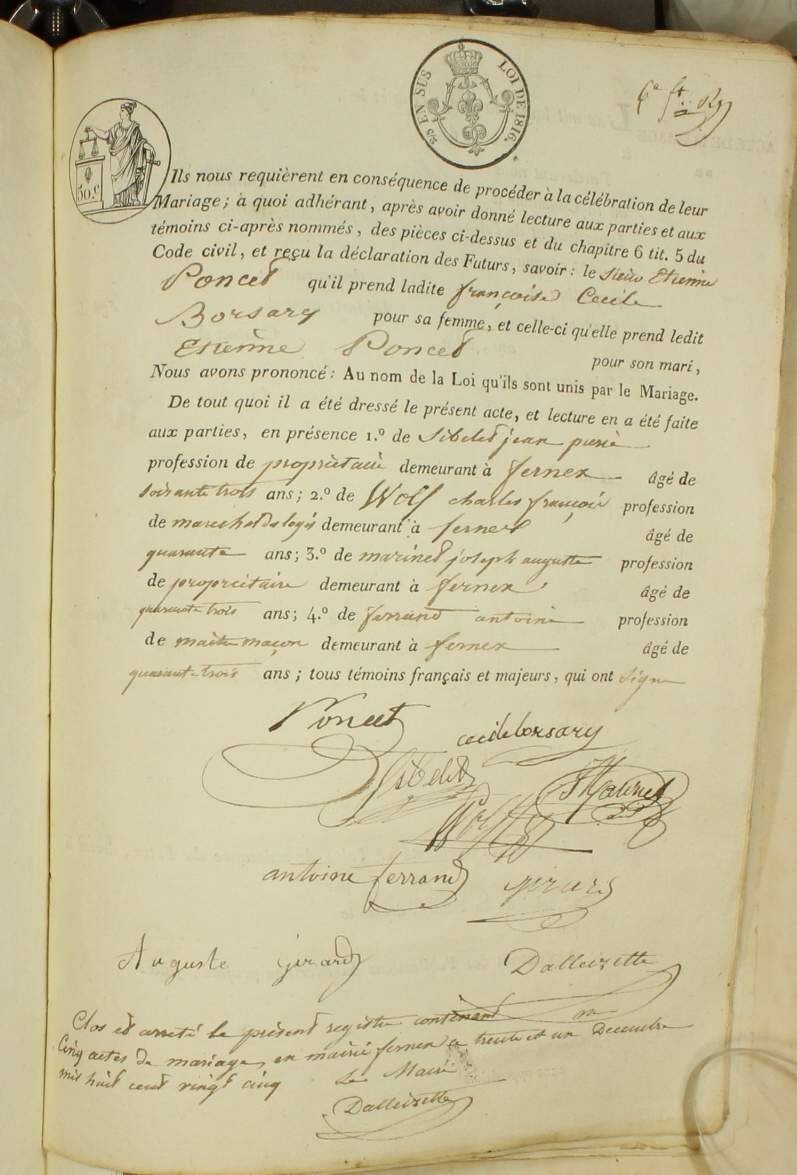 2/5 EN SUS LOI DE 1816.
6e ft
50.c
Ils nous requièrent en conséquence de procéder à la célébration de leur
Mariage; à quoi adhérant, après avoir donné lecture aux parties et aux
témoins ci-après nommés, des pièces ci-dessus et du chapitre 6 tit. 5 du
Code civil, et reçu la déclaration des Futurs, savoir: le Sieur Etienne
Poncet qu'il prend ladite françoise Cecile
Borsary pour sa femme, et celle-ci qu'elle prend ledit
Etienne Poncet pour son mari,
Nous avons prononcé: Au nom de la Loi qu'ils sont unis par le Mariage.
De tout quoi il a été dressé le présent acte, et lecture en a été faite
aux parties, en présence 1.º de Sibelet jean pierre
profession de propriétaire demeurant à fernex âgé de
soixante trois ans; 2.º de Wolf charles françois profession
de marechal de logis demeurant à fernex âgé de
quarante ans; 3.º de marinet joseph auguste profession
de propriétaire demeurant à fernex âgé de
quarante trois ans; 4.º de ferrand antoine profession
de maitre maçon demeurant à fernex âgé de
quarante trois ans; tous témoins français et majeurs, qui ont signé
Poncet
cecile borsary
Sibelet
Marinet
Wolf
antoine ferrand girard
Auguste girard Dalleizette
Clos et arreté le présent registre contenant
Cinq actes de mariage, en mairie fernex ce trente et un Decembre
mil huit cent vingt cinq Le Maire
Dalleizette